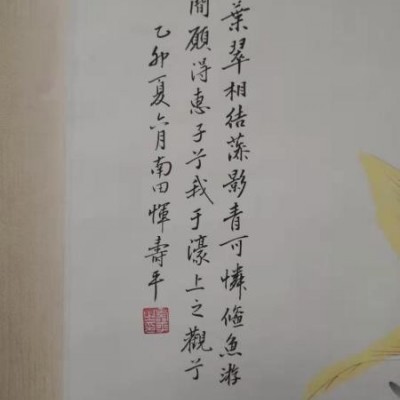 葉翠相結藻影青可憐儵魚游
間願得惠子兮我于濠上之觀兮
乙卯夏六月南田惲壽平